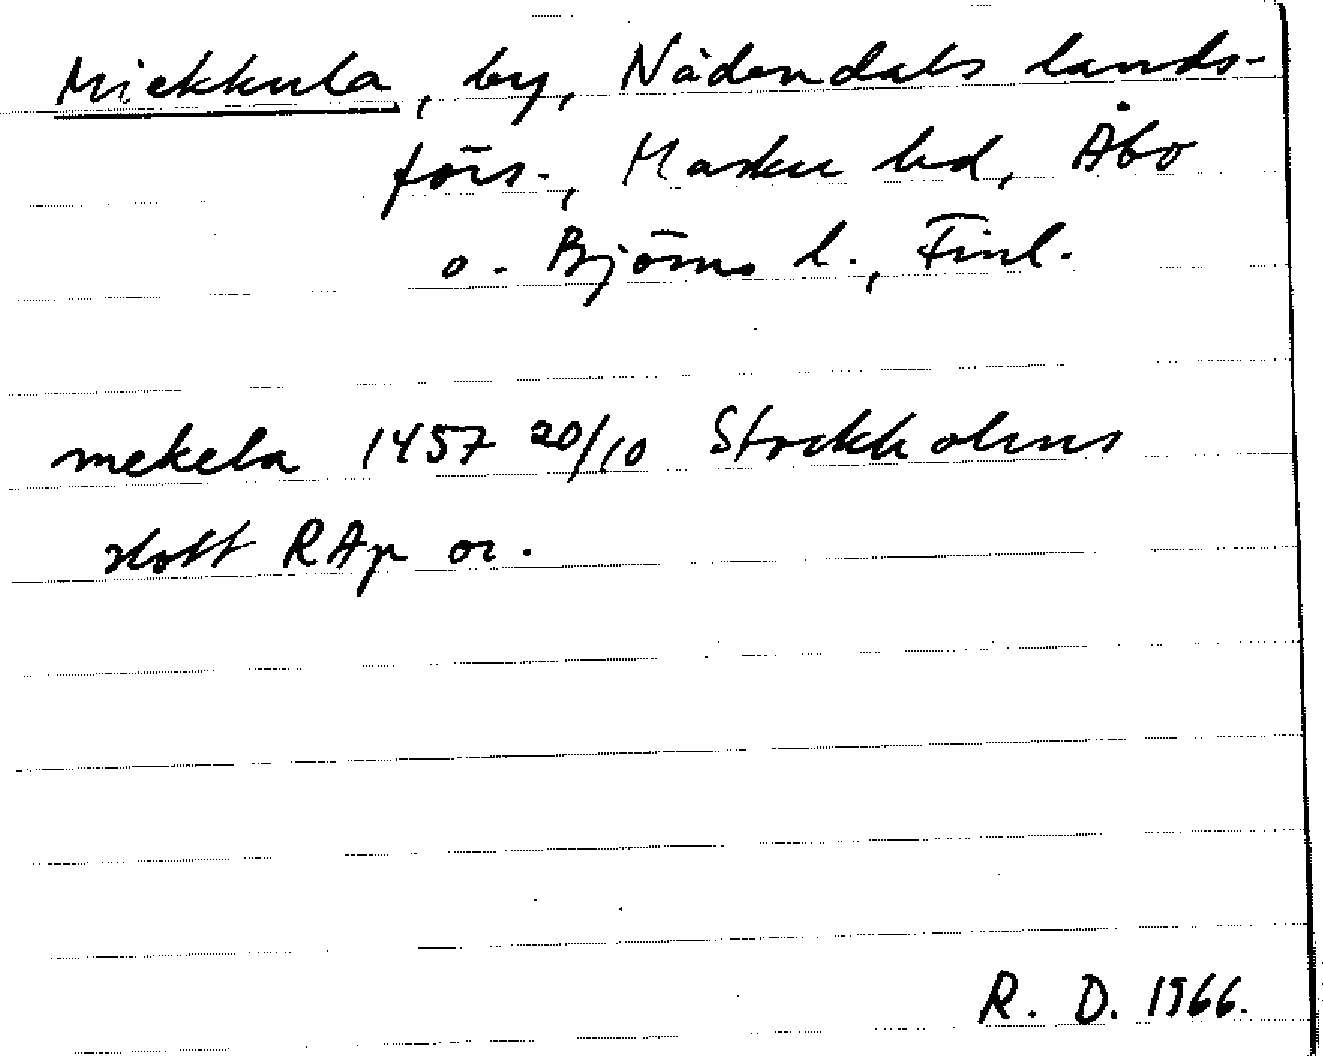 Miekkula, by, Nådendals lands-
förs., Masku hd, Åbo
o. Björns l., Finl.
mekela 1457 20/10 Stockholms
slott RAp or.
R. D. 1966.